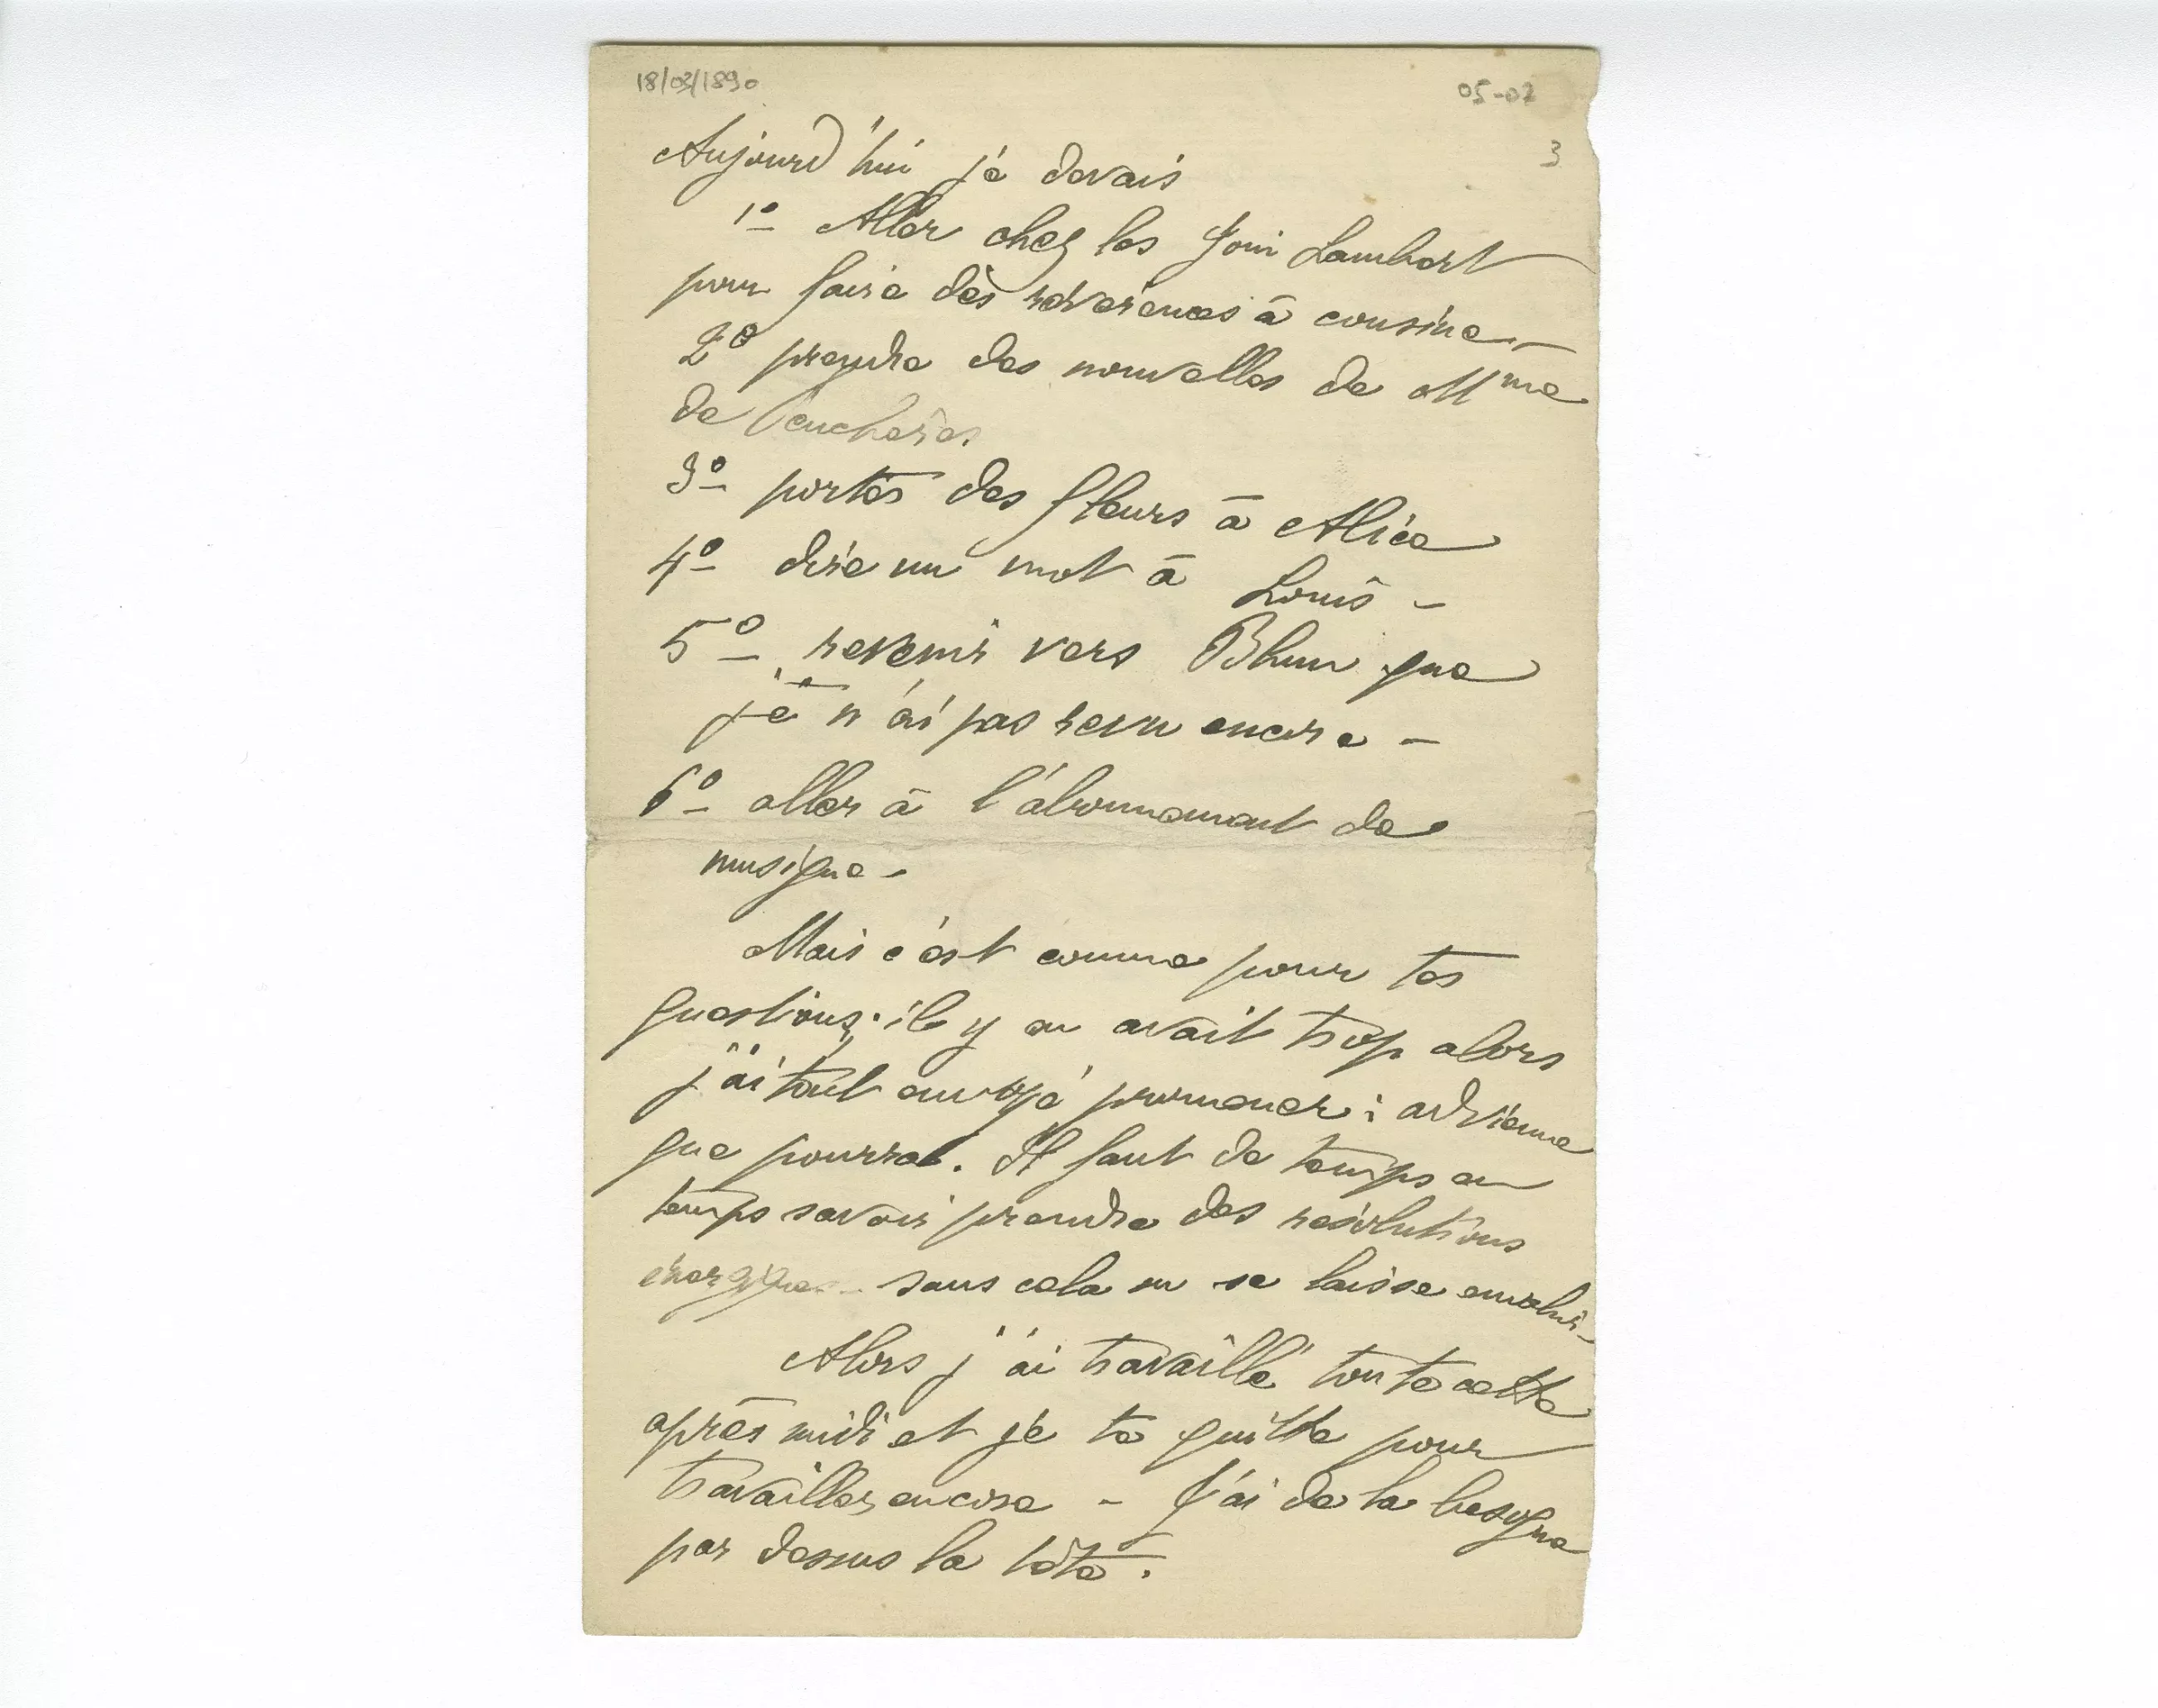 18/03/1890
05-02
3
Aujourd'hui je devais
1º Aller chez les Join Lambert
pour faire des révérences à cousine. —
2º prendre des nouvelles de Mme
de
3º porter des fleurs à Alice
4º dire un mot à Louis –
5º revenir vers Blum que
je n'ai pas revu encore –
6º aller à l'abonnement de
musique –
Mais c'est comme pour tes
questions; il y en avait trop alors
j'ai tout envoyé promener : advienne
que pourra. Il faut de temps en
temps savoir prendre des résolutions
énergiques – sans cela on se laisse envahir –
Alors j'ai travaillé toute cette
après midi et je te quitte pour
travailler encore – J'ai de la besogne
par dessus la tête.